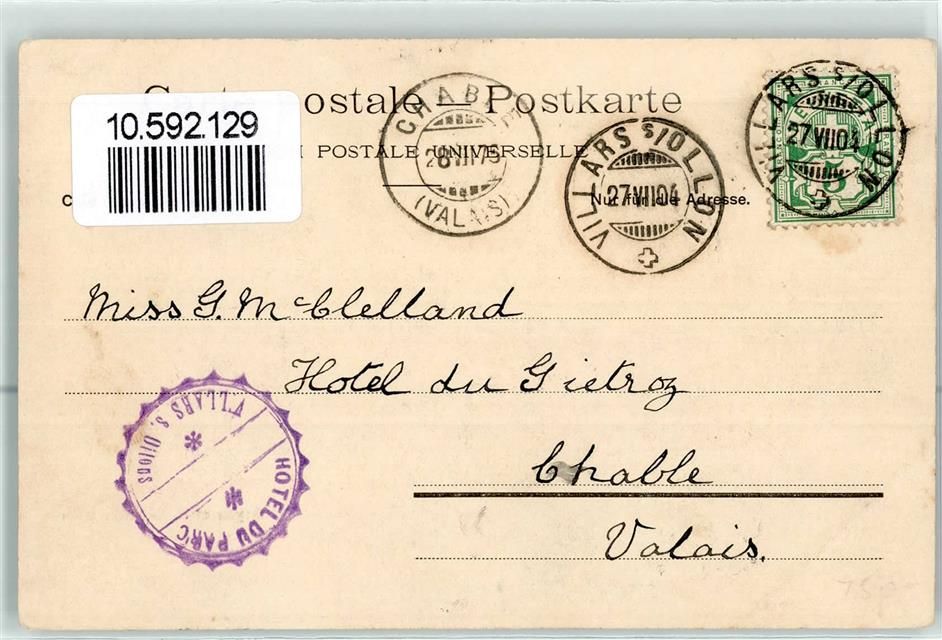 Postkarte
10.592.129
POSTALE UNIVERSELLE
Nur für die Adresse.
CHABLE
28 VII
(VALAIS)
VILLARS S/OLLON
27 VII 04
VILLARS S/OLLON
27 VII 04
5
Miss G. McClelland
Hotel du Gietroz
Chable
Valais.
VILLARS S. Ollons
HOTEL DU PARC